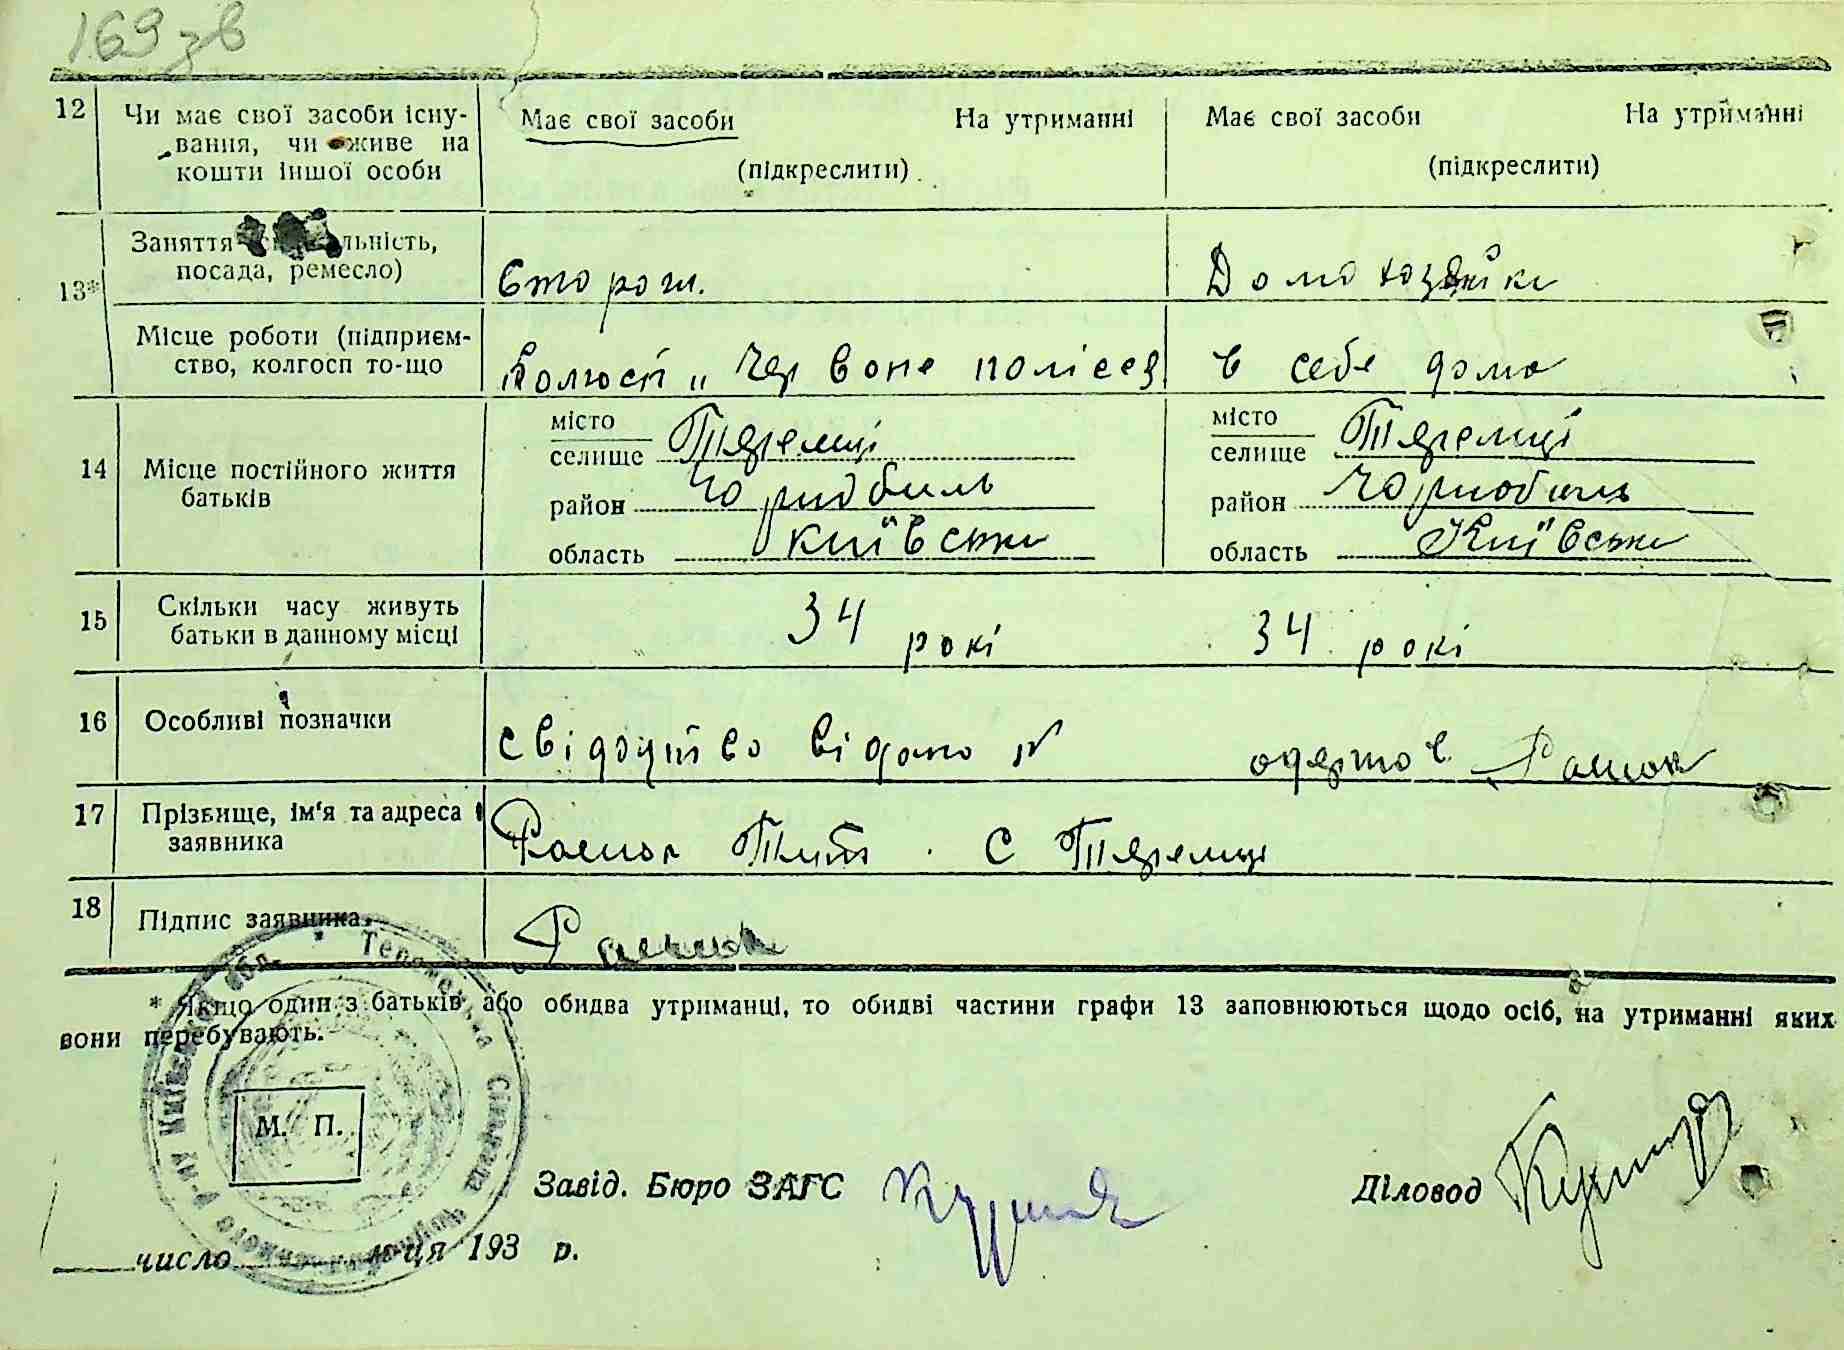 169 зв
12 Чи має свої засоби існу-
вання, чи живе на
кошти іншої особи
Має свої засоби На утриманні
(підкреслити)
Має свої засоби На утриманні
(підкреслити)
13* Заняття льність,
посада, ремесло)
Сторож.
Домохазяйка
Місце роботи (підприєм-
ство, колгосп то-що
Колгосп „Червоне полісся
в себе дома
14 Місце постійного життя
батьків
місто
селище Теремці
район Чорнобиль
область Київська
місто
селище Теремці
район Чорнобиль
область Київська
15 Скільки часу живуть
батьки в данному місці
34 рокі
34 рокі
16 Особливі позначки
Свідоцтво видано № одержав
17 Прізвище, ім'я та адреса
заявника
Тит. С Теремці
18 Підпис заявника
* Якщо один з батьків або обидва утриманці, то обидві частини графи 13 заповнюються щодо осіб, на утриманні яких
вони перебувають.
М. П.
Завід. Бюро ЗАГС
Діловод
число м-ця 193 р.